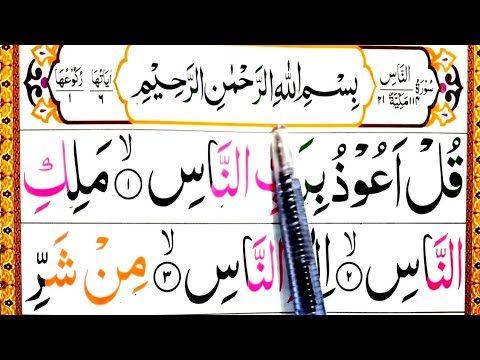 سُوْرَةُ النَّاسِ مَكِّيَّةٌ ١١٤ ٢١
بِسْمِ اللّٰهِ الرَّحْمٰنِ الرَّحِيْمِ
اٰيَاتُهَا ٦ رُكُوْعُهَا ١
قُلْ اَعُوْذُ بِرَبِّ النَّاسِ ۙ﴿١﴾ مَلِكِ
النَّاسِ ۙ﴿٢﴾ اِلٰهِ النَّاسِ ۙ﴿٣﴾ مِنْ شَرِّ